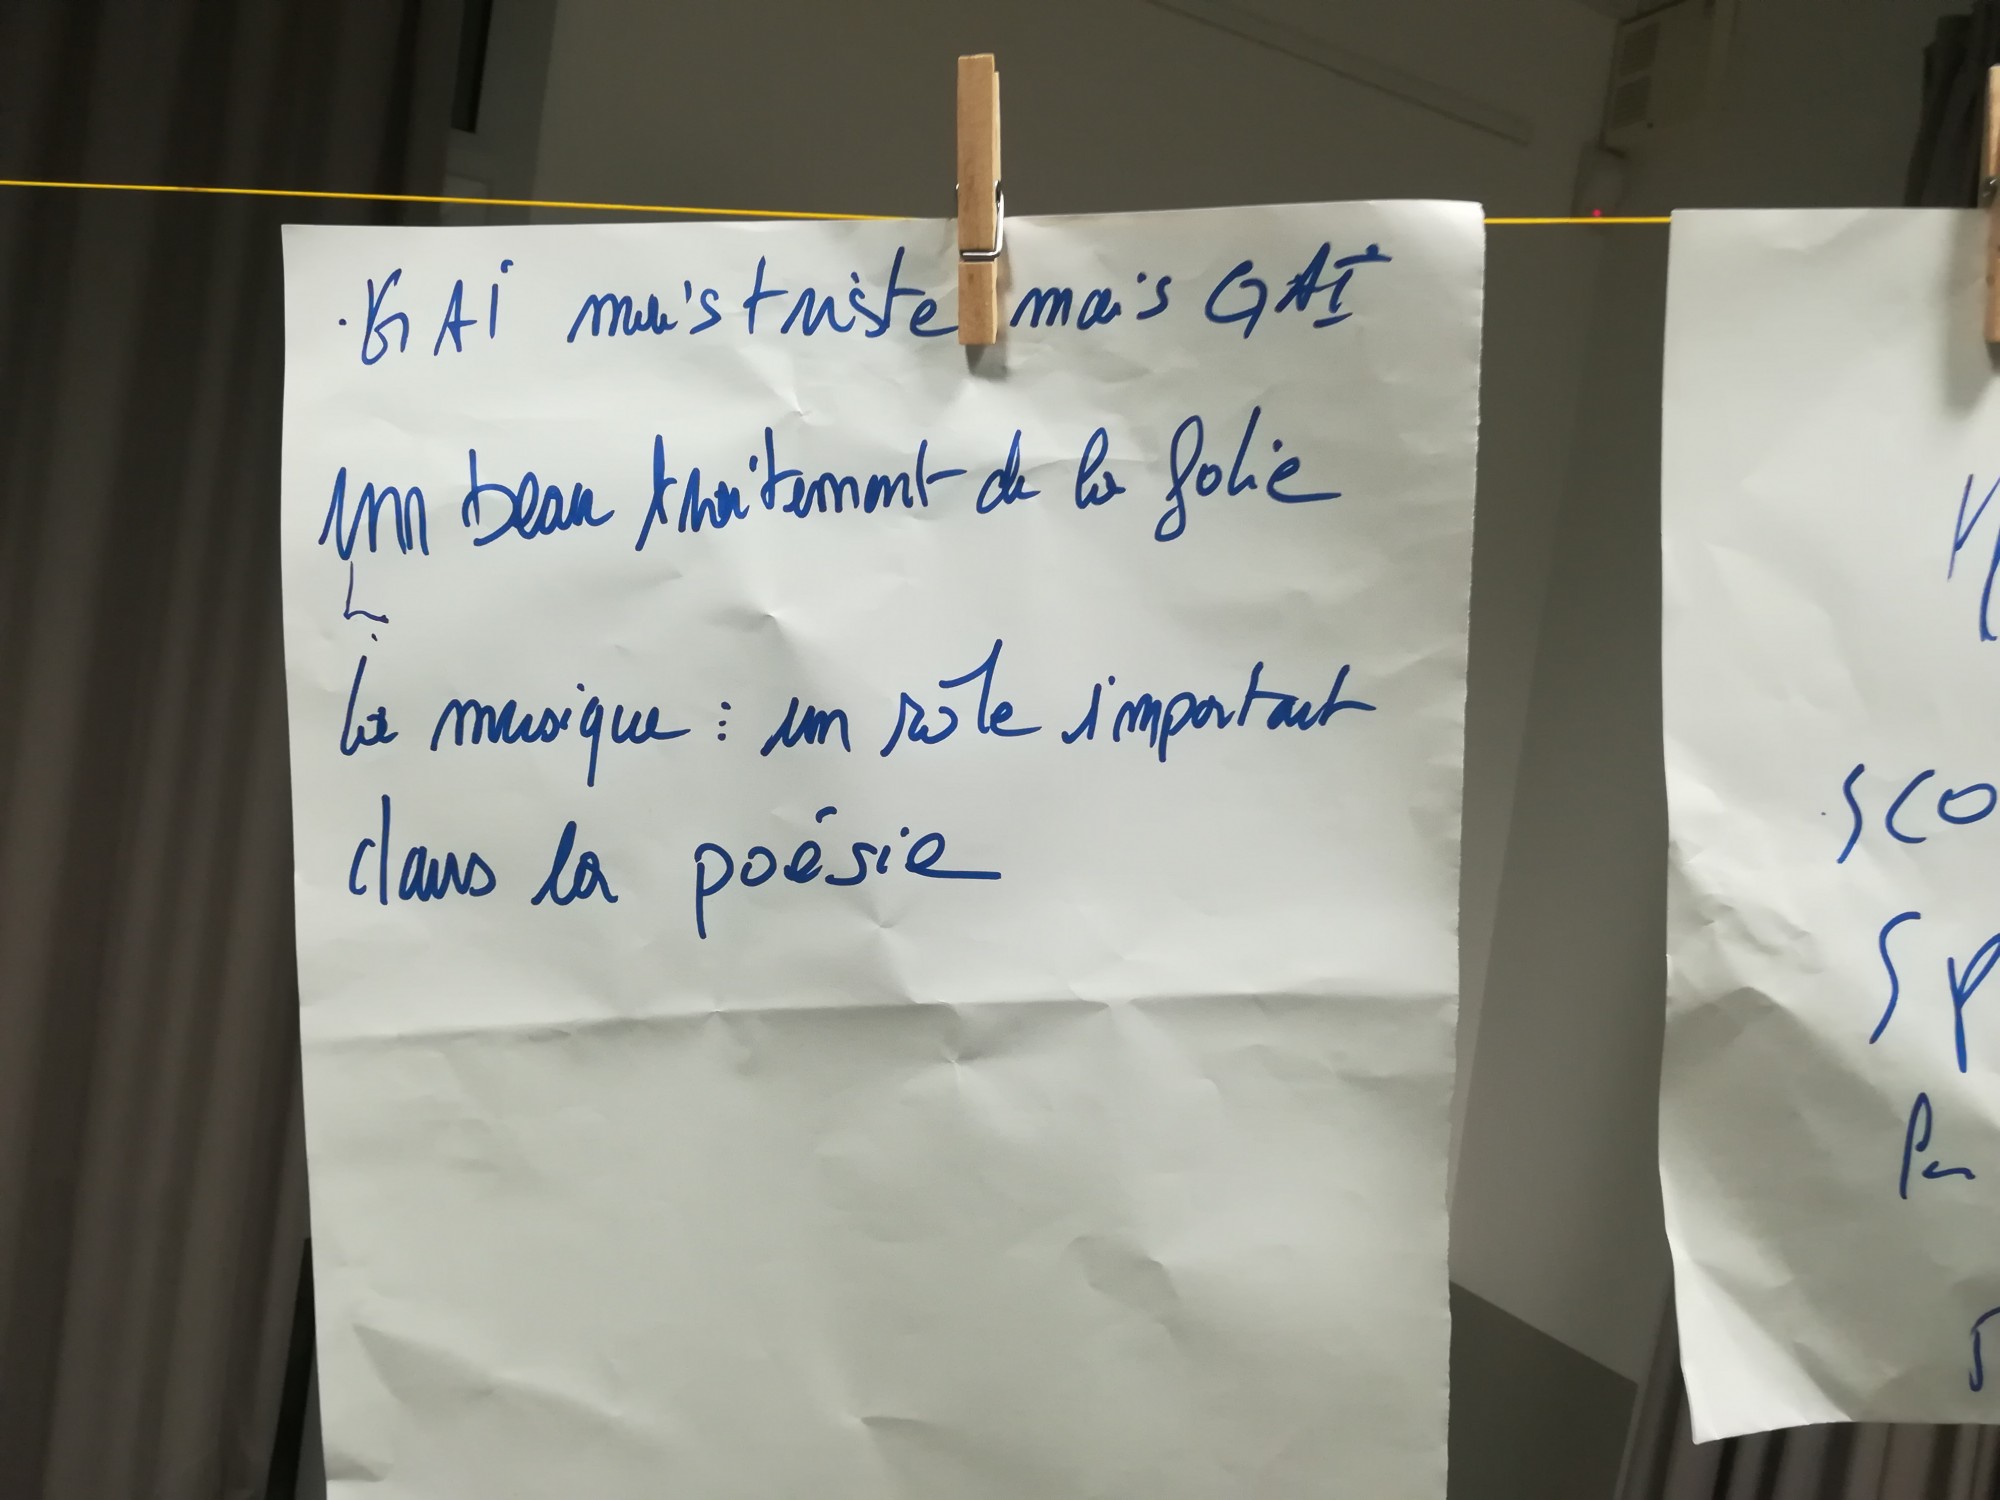 . GAI mais triste mais GAI
un beau traitement de la folie
L
La musique : un rôle important
dans la poésie
SCO
SP